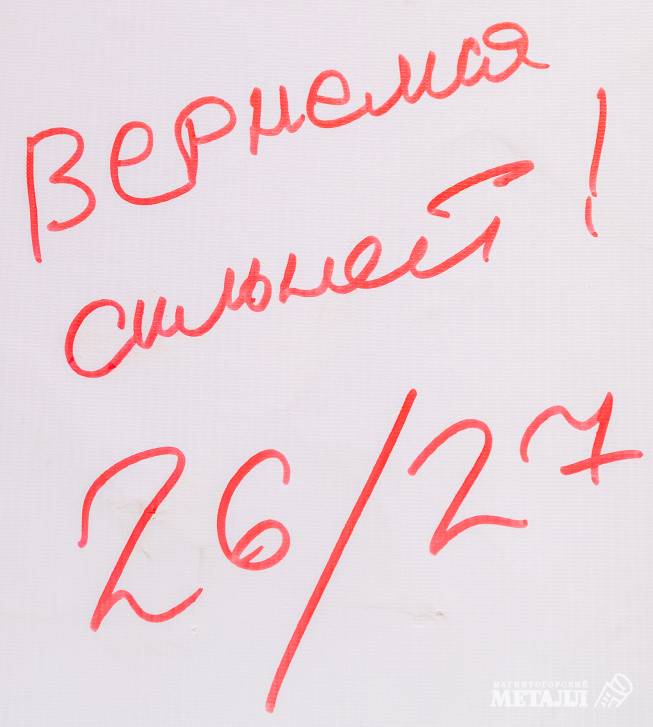 Вернемся
сильней!
26/27
МАГНИТОГОРСКИЙ
МЕТАЛЛ